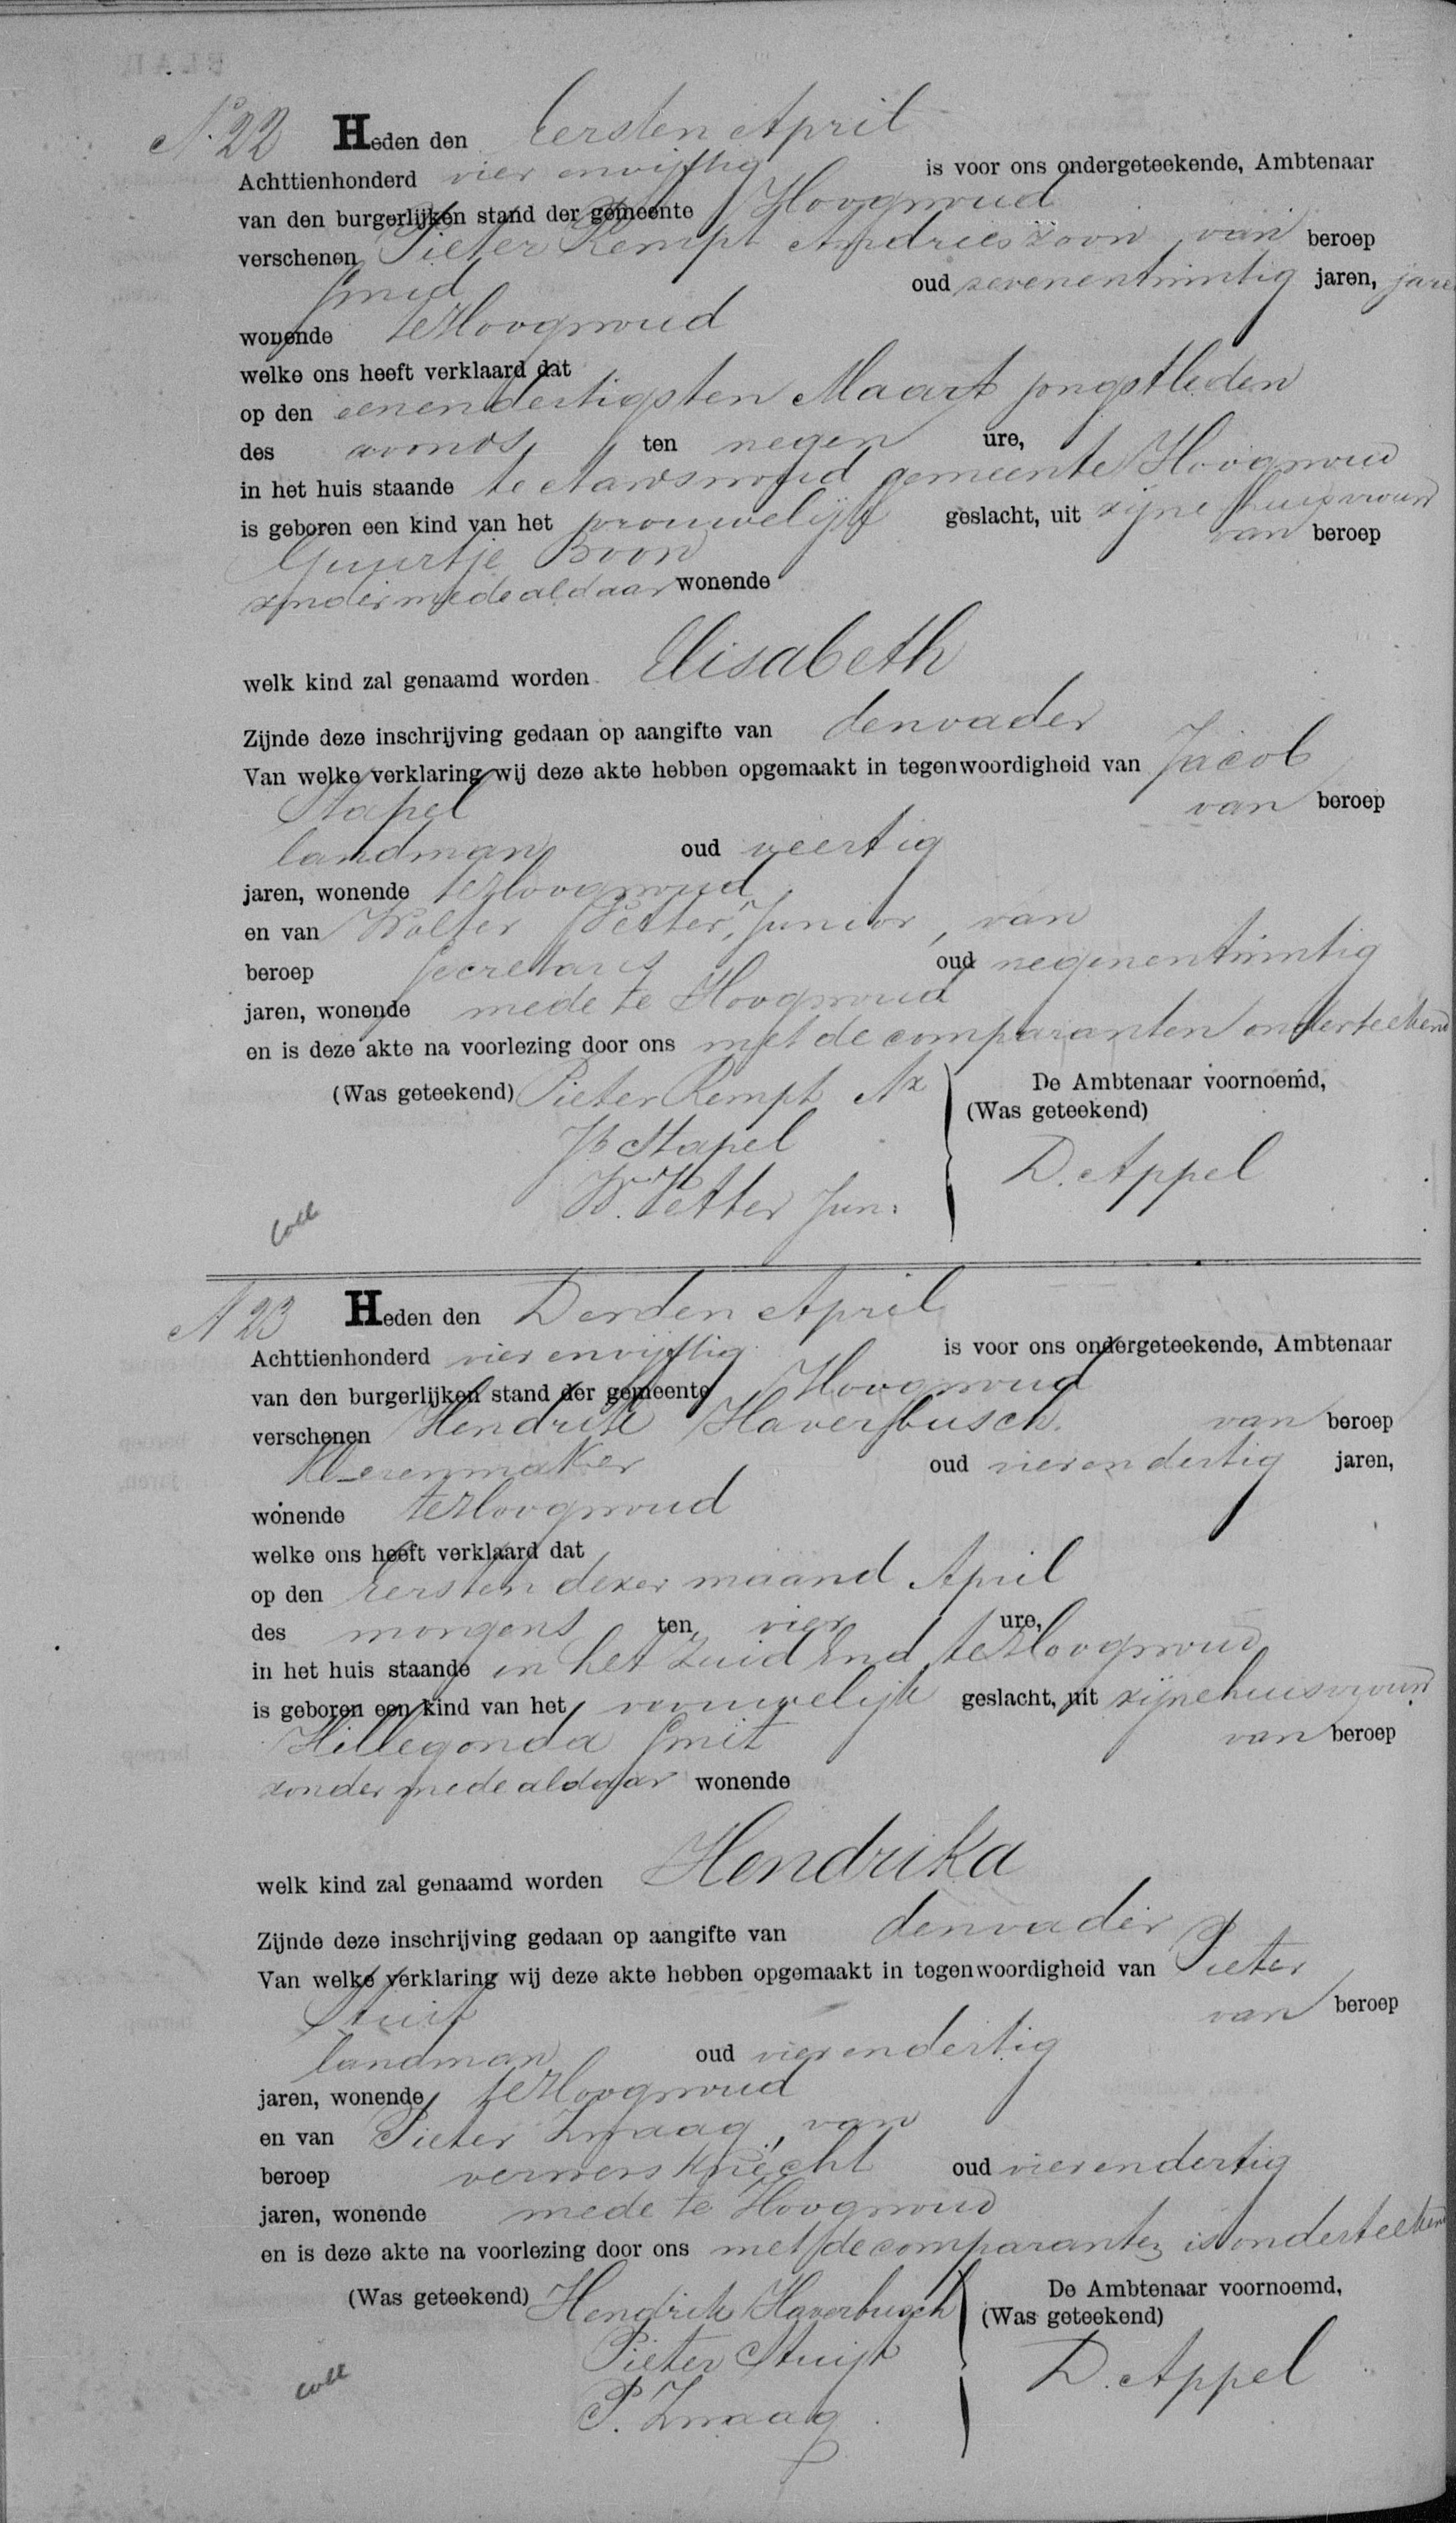 N. 22 Heden den Eersten April
Achttienhonderd vier en vijftig is voor ons ondergeteekende, Ambtenaar
van den burgerlijken stand der gemeente Hoogwoud
verschenen Pieter Kempt Andries zoon van beroep
smid oud zevenentwintig jaren, jaren
wonende te Hoogwoud
welke ons heeft verklaard dat
op den eenendertigsten Maart jongstleden
des avonds ten negen ure,
in het huis staande te Aardswoud gemeente Hoogwoud
is geboren een kind van het vrouwelijk geslacht, uit zijne huisvrouw
Guurtje Boon van beroep
zonder mede aldaar wonende
welk kind zal genaamd worden Elisabeth
Zijnde deze inschrijving gedaan op aangifte van den vader
Van welke verklaring wij deze akte hebben opgemaakt in tegenwoordigheid van Jacob
Stapel van beroep
landman oud veertig
jaren, wonende te Hoogwoud
en van Wolter Petter, Junior, van
beroep Secretaris oud negenentwintig
jaren, wonende mede te Hoogwoud
en is deze akte na voorlezing door ons met de comparanten onderteekend
(Was geteekend) Pieter Kempt Az
Jb Stapel
W. Petter Jun:
De Ambtenaar voornoemd,
(Was geteekend)
D. Appel
Coll
N 23 Heden den Derden April
Achttienhonderd vier en vijftig is voor ons ondergeteekende, Ambtenaar
van den burgerlijken stand der gemeente Hoogwoud
verschenen Hendrik Haverbusch. van beroep
Kleerenmaker oud vierendertig jaren,
wonende te Hoogwoud
welke ons heeft verklaard dat
op den Eersten dezer maand April
des morgens ten vier ure,
in het huis staande in het Zuid End te Hoogwoud
is geboren een kind van het vrouwelijk geslacht, uit zijne huisvrouw
Hillegonda Smit van beroep
zonder mede aldaar wonende
welk kind zal genaamd worden Hendrika
Zijnde deze inschrijving gedaan op aangifte van den vader
Van welke verklaring wij deze akte hebben opgemaakt in tegenwoordigheid van Pieter
Stuijt van beroep
landman oud vierendertig
jaren, wonende te Hoogwoud
en van Pieter Zwaag, van
beroep ververs Knecht oud vierendertig
jaren, wonende mede te Hoogwoud
en is deze akte na voorlezing door ons met de comparanten is onderteekend
(Was geteekend) Hendrik Haverbusch
Pieter Stuijt
P. Zwaag.
De Ambtenaar voornoemd,
(Was geteekend)
D. Appel
coll